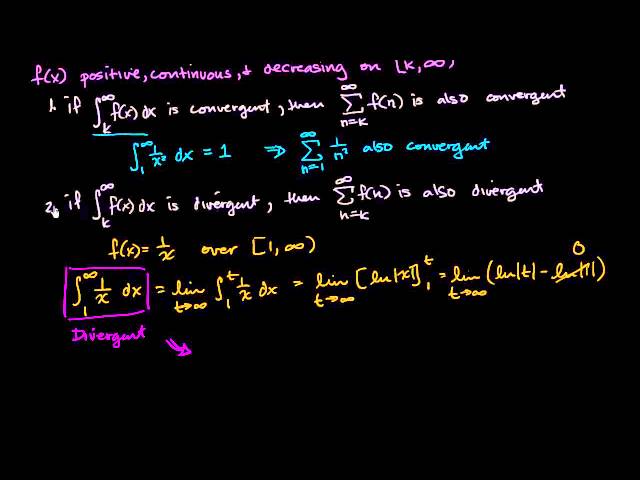 f(x) positive, continuous, & decreasing on [k, ∞)
1. if ∫_k^∞ f(x) dx is convergent, then ∑_{n=k}^∞ f(n) is also convergent
∫_1^∞ 1/x² dx = 1 ⇒ ∑_{n=1}^∞ 1/n² also convergent
2. if ∫_k^∞ f(x) dx is divergent, then ∑_{n=k}^∞ f(n) is also divergent
f(x) = 1/x over [1, ∞)
∫_1^∞ 1/x dx = lim_{t→∞} ∫_1^t 1/x dx = lim_{t→∞} [ln|x|]_1^t = lim_{t→∞} (ln|t| - ln|1|) 0
Divergent